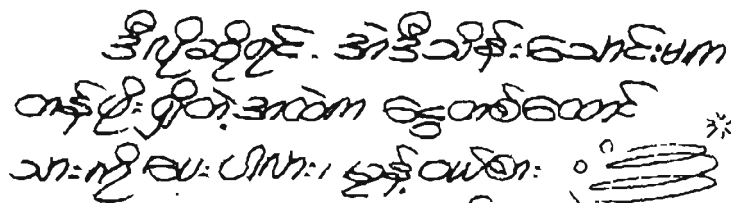 ဒီလိုဆိုရင်. အဲဒီသိန်းသောင်းမက
တန်ဖိုးရှိတဲ့အထဲက ငွေတစ်ထောင်
သားကိုပေးပါလား၊ မုန့်ဝယ်စား